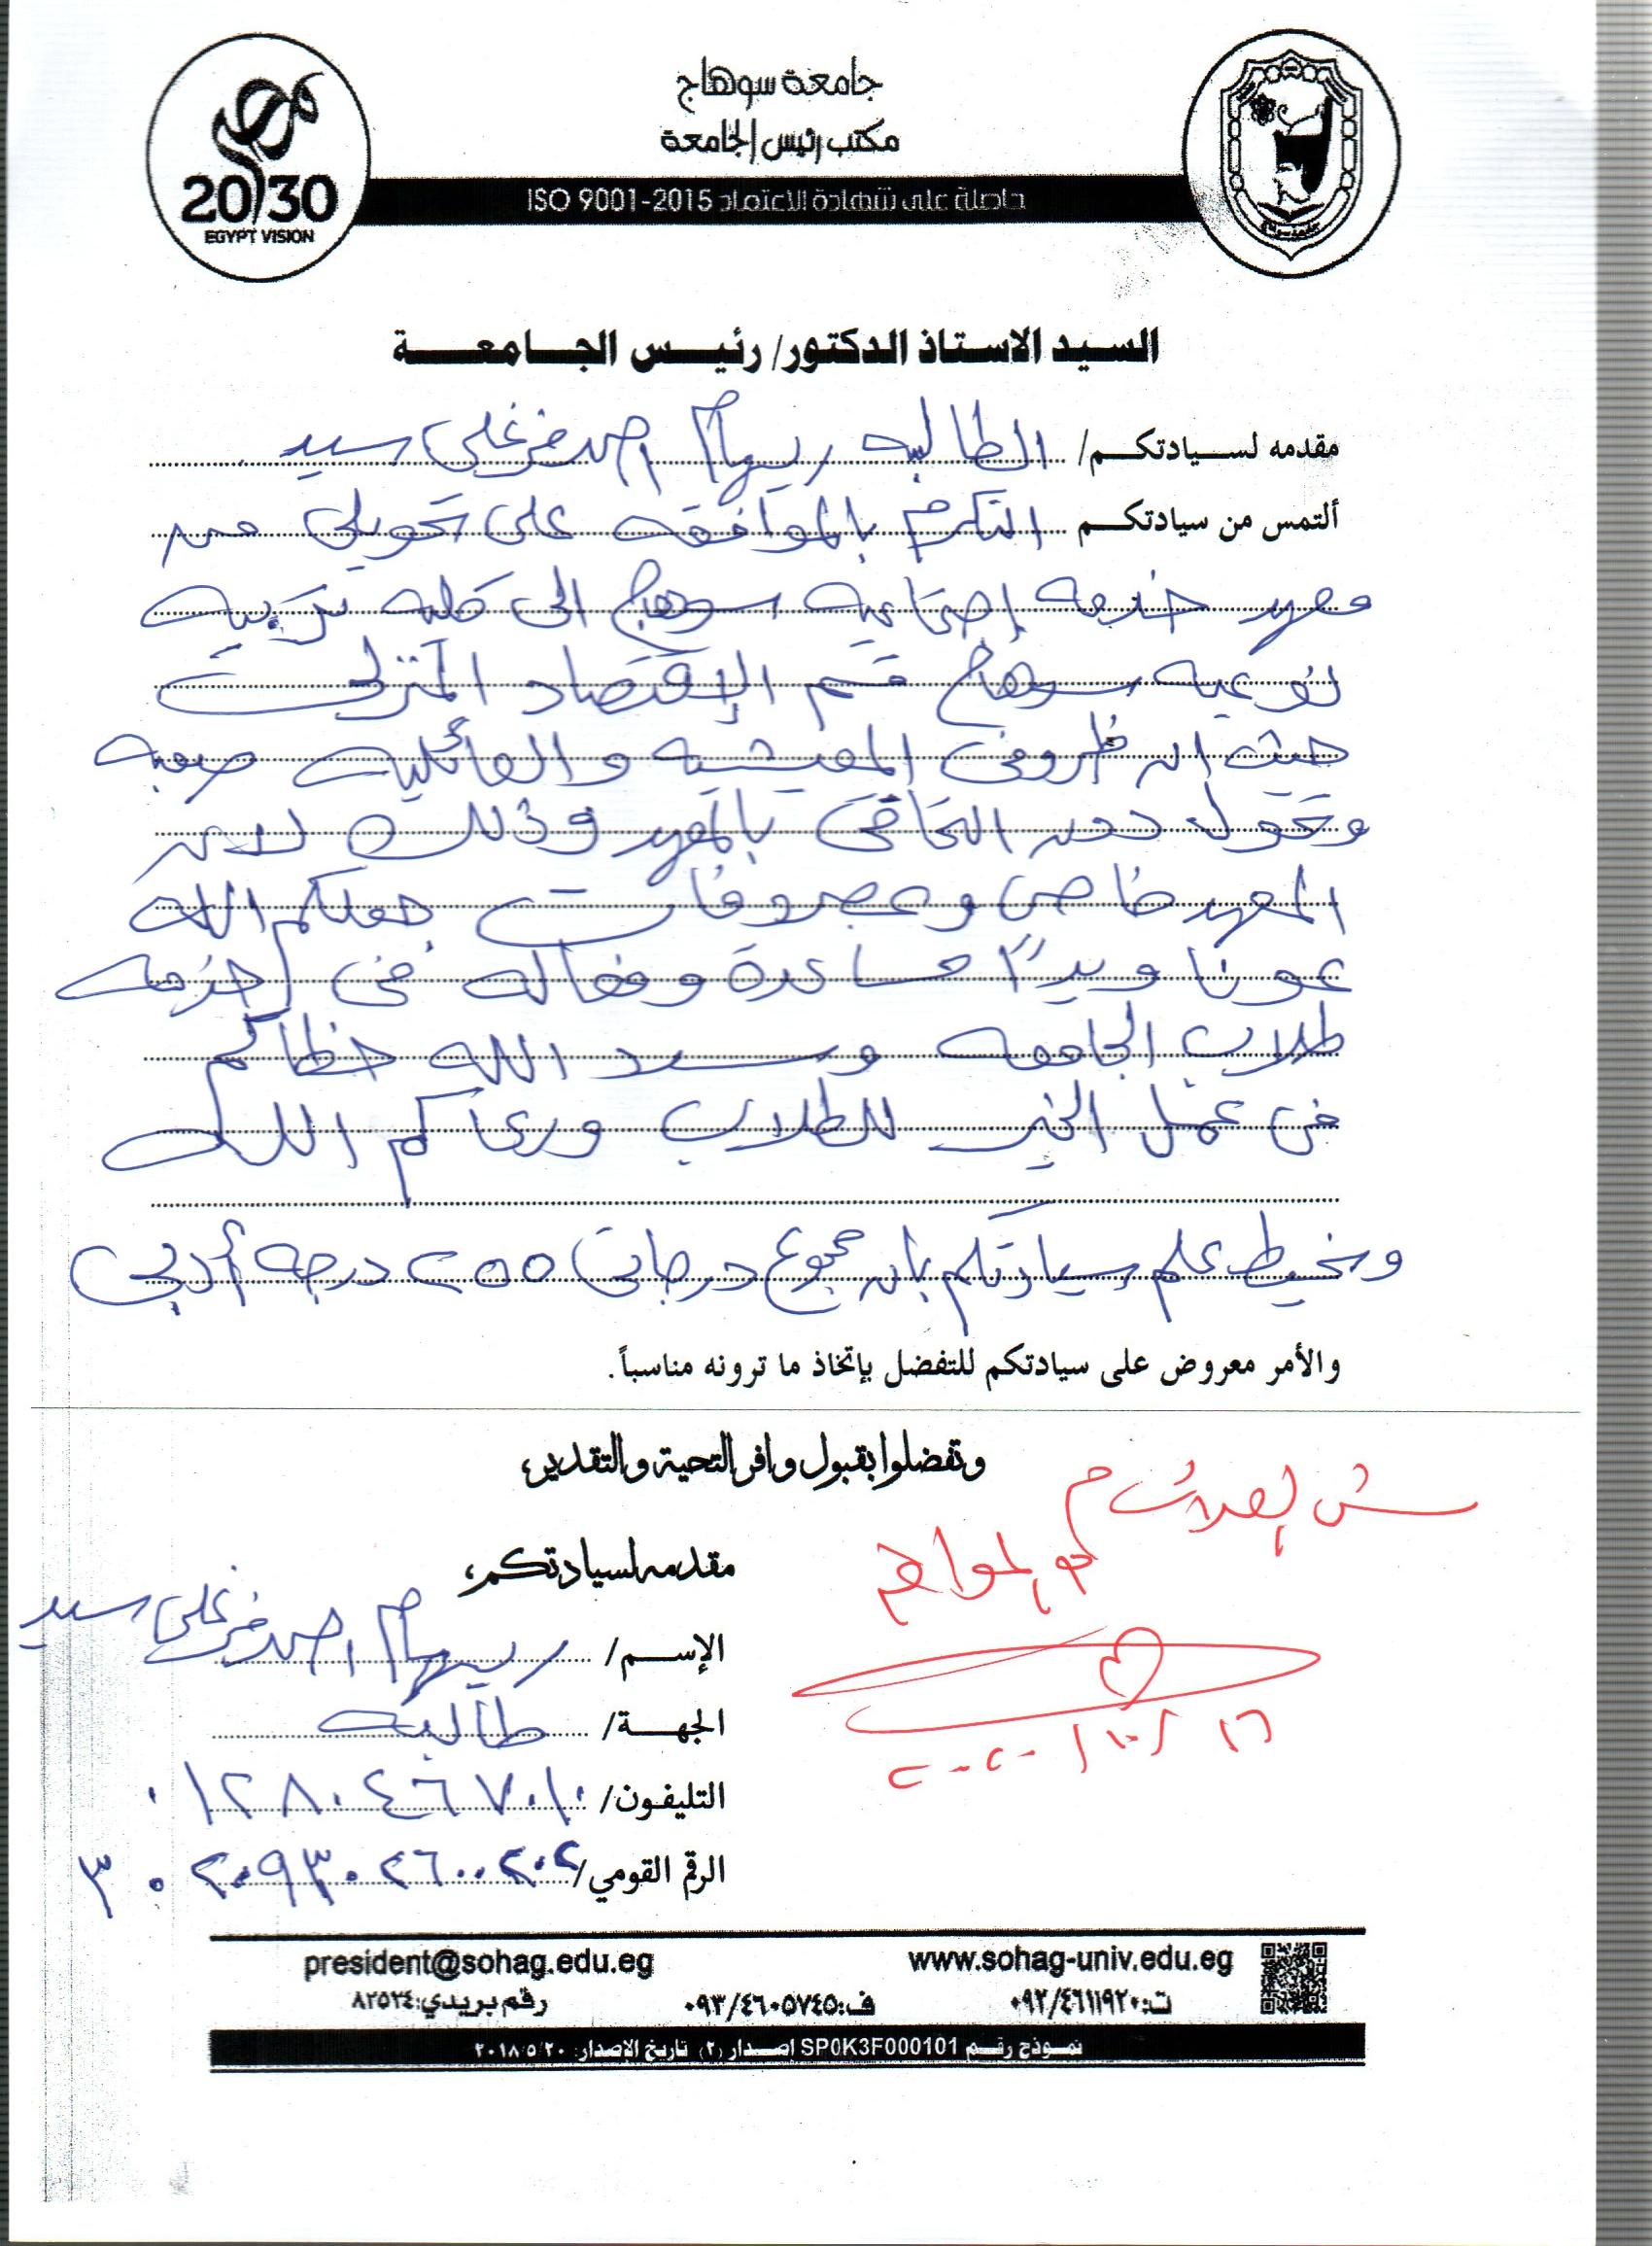 مصر
2030
EGYPT VISION
جامعة سوهاج
مكتب رئيس الجامعة
حاصلة على شهادة الاعتماد ISO 9001-2015
السيد الاستاذ الدكتور/ رئيس الجامعة
مقدمه لسيادتكم/ الطالبه ريهام احمد فرغلى سيد
ألتمس من سيادتكم التكرم بالموافقه على تحويلى من
معهد خدمه إجتماعيه سوهاج الى كليه تربيه
نوعيه سوهاج قسم الإقتصاد المنزلى
حيث ان ظروفى المعيشيه والعائليه صعبه
وتحول دون التحاقى بالمعهد وذلك لان
المعهد خاص وبمصروفات جعلكم الله
عونا ويداً مساعدة وفعاله فى خدمه
طلاب الجامعه وسدد الله خطاكم
فى عمل الخير للطلاب ورعاكم الله
ونحيط علم سيادتكم بان مجموع درجاتى ٢٥٥ درجه أدبى
والأمر معروض على سيادتكم للتفضل بإتخاذ ما ترونه مناسباً.
وتفضلوا بقبول وافر التحية والتقدير،
مقدمه لسيادتكم،
الإسم/ ريهام احمد فرغلى سيد
الجهة/ طالبه
التليفون/ ٠١٢٨٠٤٦٧٠١٠
الرقم القومي/ ٣٠٢٠٩٣٠٢٦٠٠٢٠٢
٢٠٢٠/١٠/١٦
www.sohag-univ.edu.eg president@sohag.edu.eg
ت:٠٩٣/٤٦١١٩٢٠ ف:٠٩٣/٤٦٠٥٧٤٥ رقم بريدي:٨٢٥٢٤
نموذج رقم SP0K3F000101 اصدار (٢) تاريخ الاصدار: ٢٠١٨/٥/٢٠